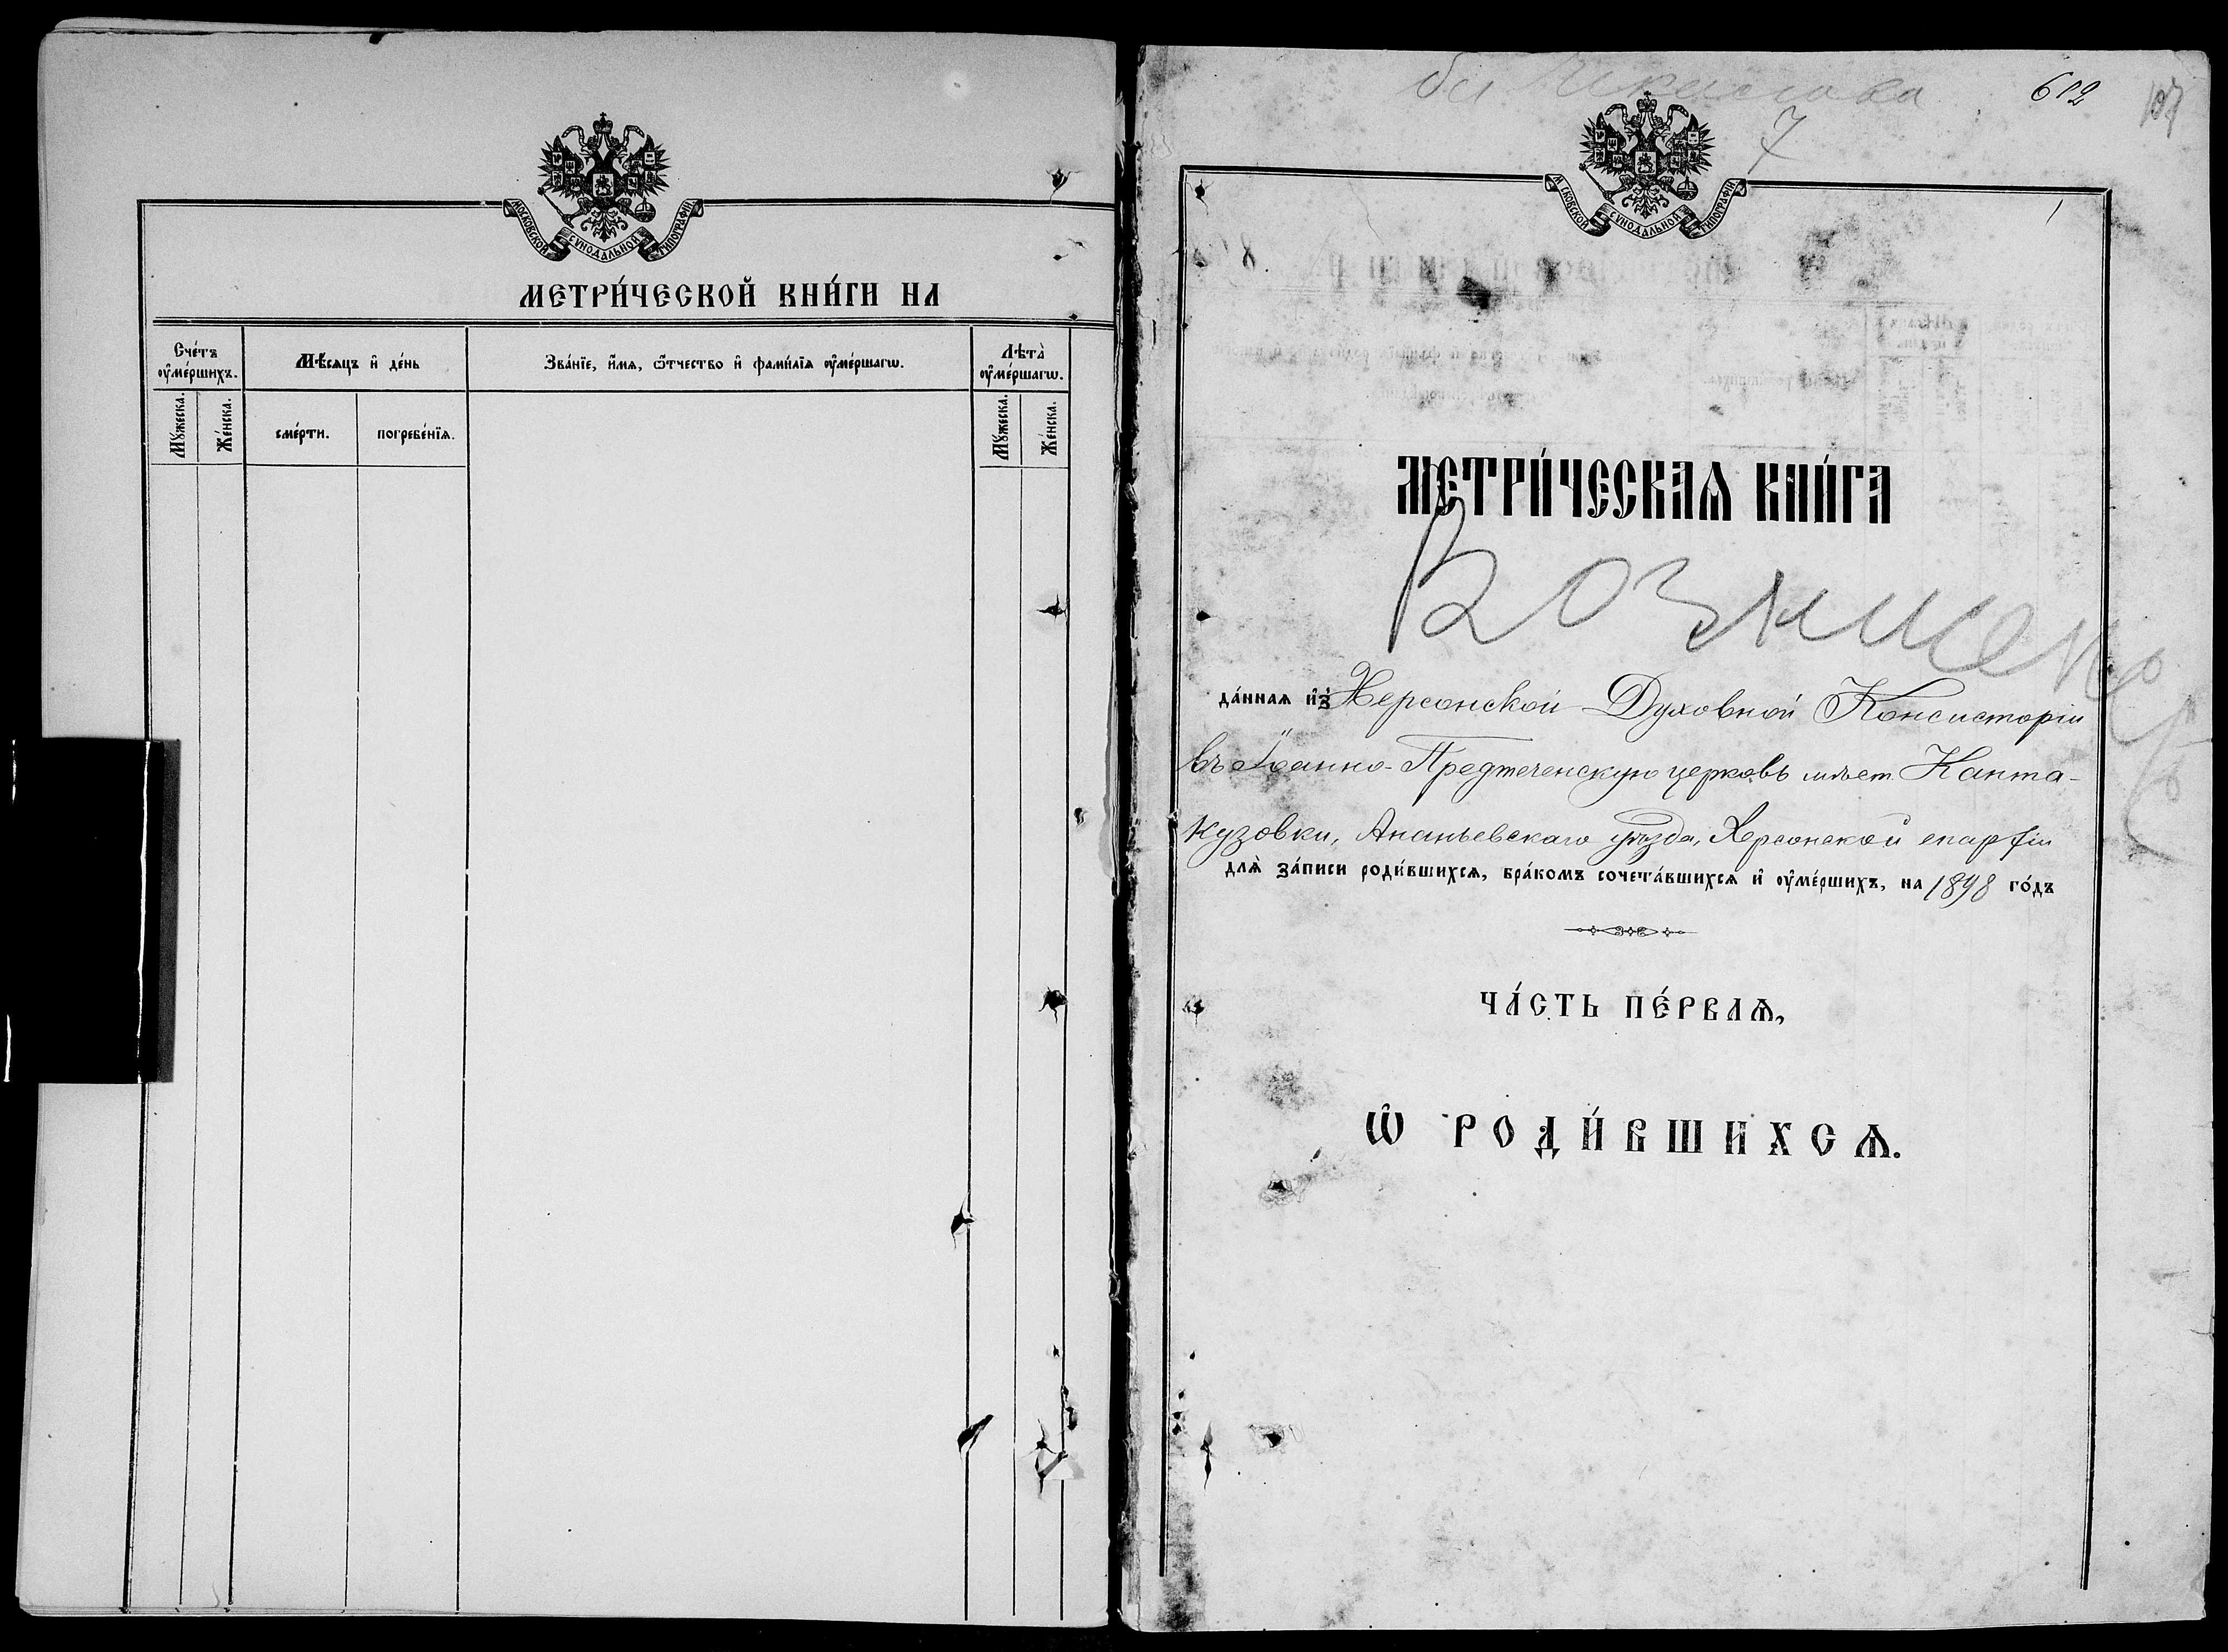 МОСКОВСКОЙ СѴНОДАЛЬНОЙ ТИПОГРАФІИ
МЕТРИ́ЧЕСКОЙ КНИ́ГИ НА
Сче́тъ ᲂу҆ме́ршихъ.
Мѣ́сяцъ и҆ де́нь
Зва́нїе, и҆́мѧ, ѻ҆́тчество и҆ фами́лїѧ ᲂу҆ме́ршагѡ.
Лѣта̀ ᲂу҆ме́ршагѡ.
Мꙋ́жеска.
Же́нска.
сме́рти.
погребе́нїѧ.
Мꙋ́жеска.
Же́нска.
612
107
7
МОСКОВСКОЙ СѴНОДАЛЬНОЙ ТИПОГРАФІИ
МЕТРИ́ЧЕСКАѦ КНИ́ГА
да́ннаѧ и҆з̾ Херсонской Духовной Консисторіи
въ Іоанно-Предтеченскую церковь мѣст. Канта-
кузовки, Ананьевскаго уѣзда, Херсонской епархіи
длѧ̀ за́писи роди́вшихсѧ, бра́комъ сочета́вшихсѧ и҆ ᲂу҆ме́ршихъ, на 1898 го́дъ
ЧА́СТЬ ПЕ́РВАѦ,
Ѡ҆ РОДИ́ВШИХСѦ.